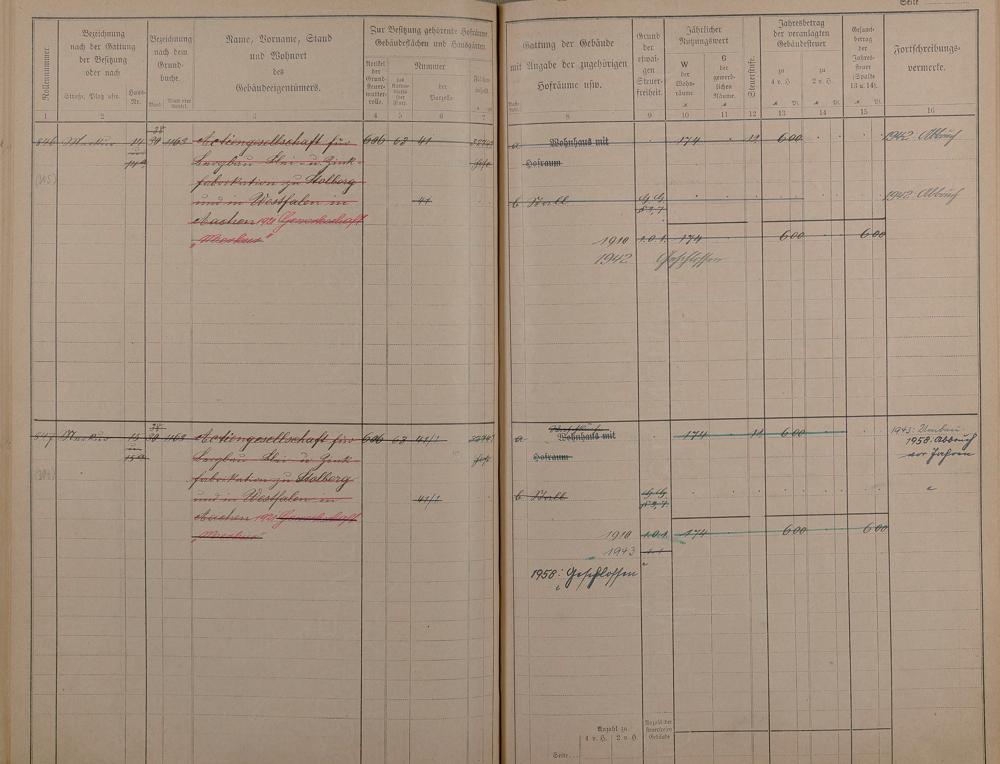 Seite
Rollennummer
Bezeichnung
nach der Gattung
der Besitzung
oder nach
Straße, Platz usw.
Haus-
Nr.
Bezeichnung
nach dem
Grund-
buche.
Band
Name, Vorname, Stand
und Wohnort
des
Gebäudeeigentümers.
Zur Besitzung gehörende Hofräume,
Gebäudeflächen und Hausgärten
Artikel
der
Grund-
steuer-
mutter-
rolle.
Nummer
der
Parzelle
1 2 3 4 5 6 7
846 Markus 14 30 1163 Actiengesellschaft für 606 63 41
Bergbau Blei- u. Zink-
fabrikation zu Stolberg
und in Westfalen in 41
Aachen 1921 Gewerkschaft
"Markus"
847 Markus 15 30 1163 Actiengesellschaft für 606 63 41/1
Bergbau Blei- u. Zink-
fabrikation zu Stolberg
und in Westfalen in 41/1
Aachen 1921 Gewerkschaft
"Markus"
Gattung der Gebäude
mit Angabe der zugehörigen
Hofräume usw.
Grund
der
etwai-
gen
Steuer-
freiheit.
Jährlicher
Nutzungswert
W
der
Wohn-
räume
G
der
gewerb-
lichen
Räume.
Steuerstufe.
Jahresbetrag
der veranlagten
Gebäudesteuer
zu
4 v. H.
zu
2 v. H.
Gesamt-
betrag
der
Jahres-
steuer
(Spalte
13 u. 14).
Fortschreibungs-
vermerke.
8 9 10 11 12 13 14 15 16
a Wohnhaus mit 174 12 6 00 1942 Abbruch
Hofraum
b Stall 1942 Abbruch
1910 1.0.1. 174 6 00 6 00
1942 Geschlossen
a Wohnhaus mit 174 6 00 1943: Umbau
Hofraum 1958: Abbruch
vor Jahren
b Stall
1910 1.0.1 174 6 00 6 00
1943 1.1
1958: Geschlossen
Anzahl zu
4 v. H. 2 v. H.
Anzahl der
steuerfreien
Gebäude
Seite